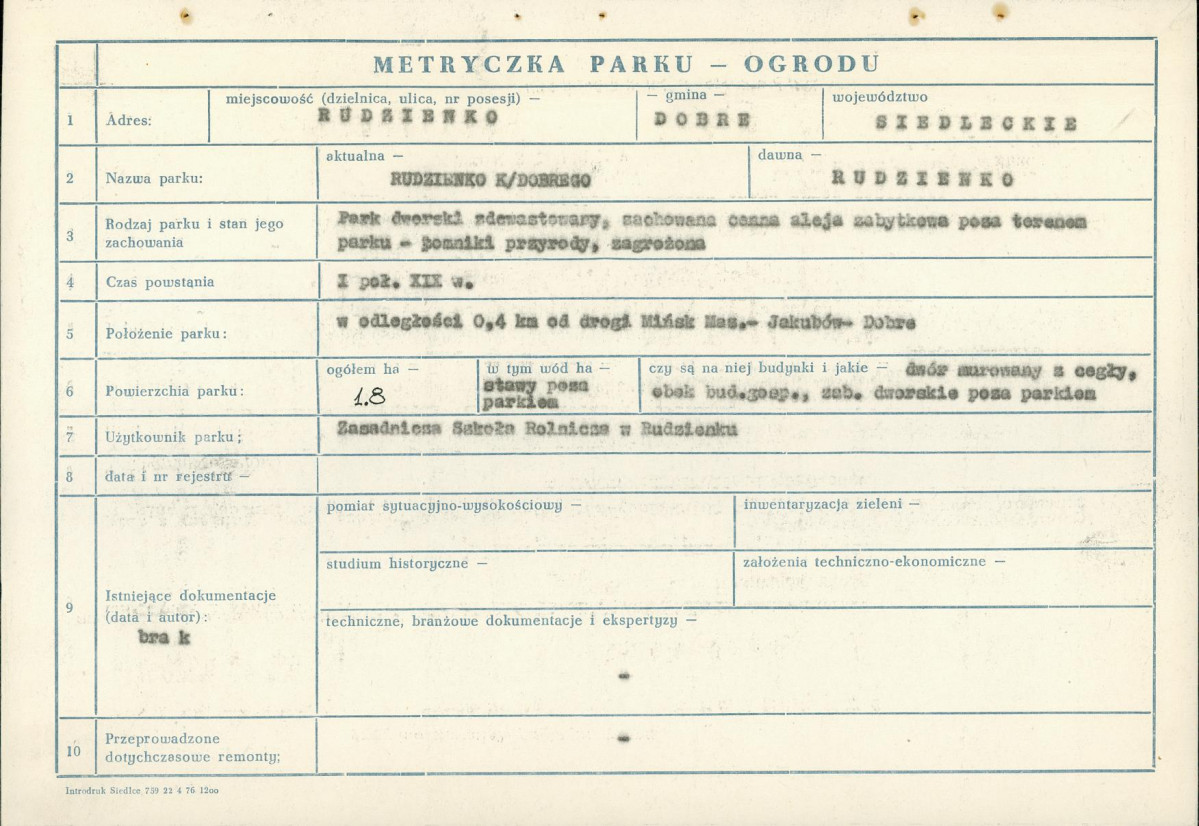 METRYCZKA PARKU – OGRODU
1 Adres: miejscowość (dzielnica, ulica, nr posesji) – – gmina – województwo
RUDZIENKO DOBRE SIEDLECKIE
2 Nazwa parku: aktualna – dawna –
RUDZIENKO K/DOBREGO RUDZIENKO
3 Rodzaj parku i stan jego zachowania
Park dworski zdewastowany, zachowana cenna aleja zabytkowa poza terenem
parku – pomniki przyrody, zagrożona
4 Czas powstania I poł. XIX w.
5 Położenie parku: w odległości 0,4 km od drogi Mińsk Maz.- Jakubów- Dobre
6 Powierzchia parku: ogółem ha – w tym wód ha – czy są na niej budynki i jakie – dwór murowany z cegły,
1.8 stawy poza obok bud.gosp., zab. dworskie poza parkiem
parkiem
7 Użytkownik parku; Zasadnicza Szkoła Rolnicza w Rudzienku
8 data i nr rejestru –
9 Istniejące dokumentacje
(data i autor):
bra k
pomiar sytuacyjno-wysokościowy – inwentaryzacja zieleni –
studium historyczne – założenia techniczno-ekonomiczne –
techniczne, branżowe dokumentacje i ekspertyzy –
-
10 Przeprowadzone
dotychczasowe remonty; -
Introdruk Siedlce 759 22 4 76 12oo